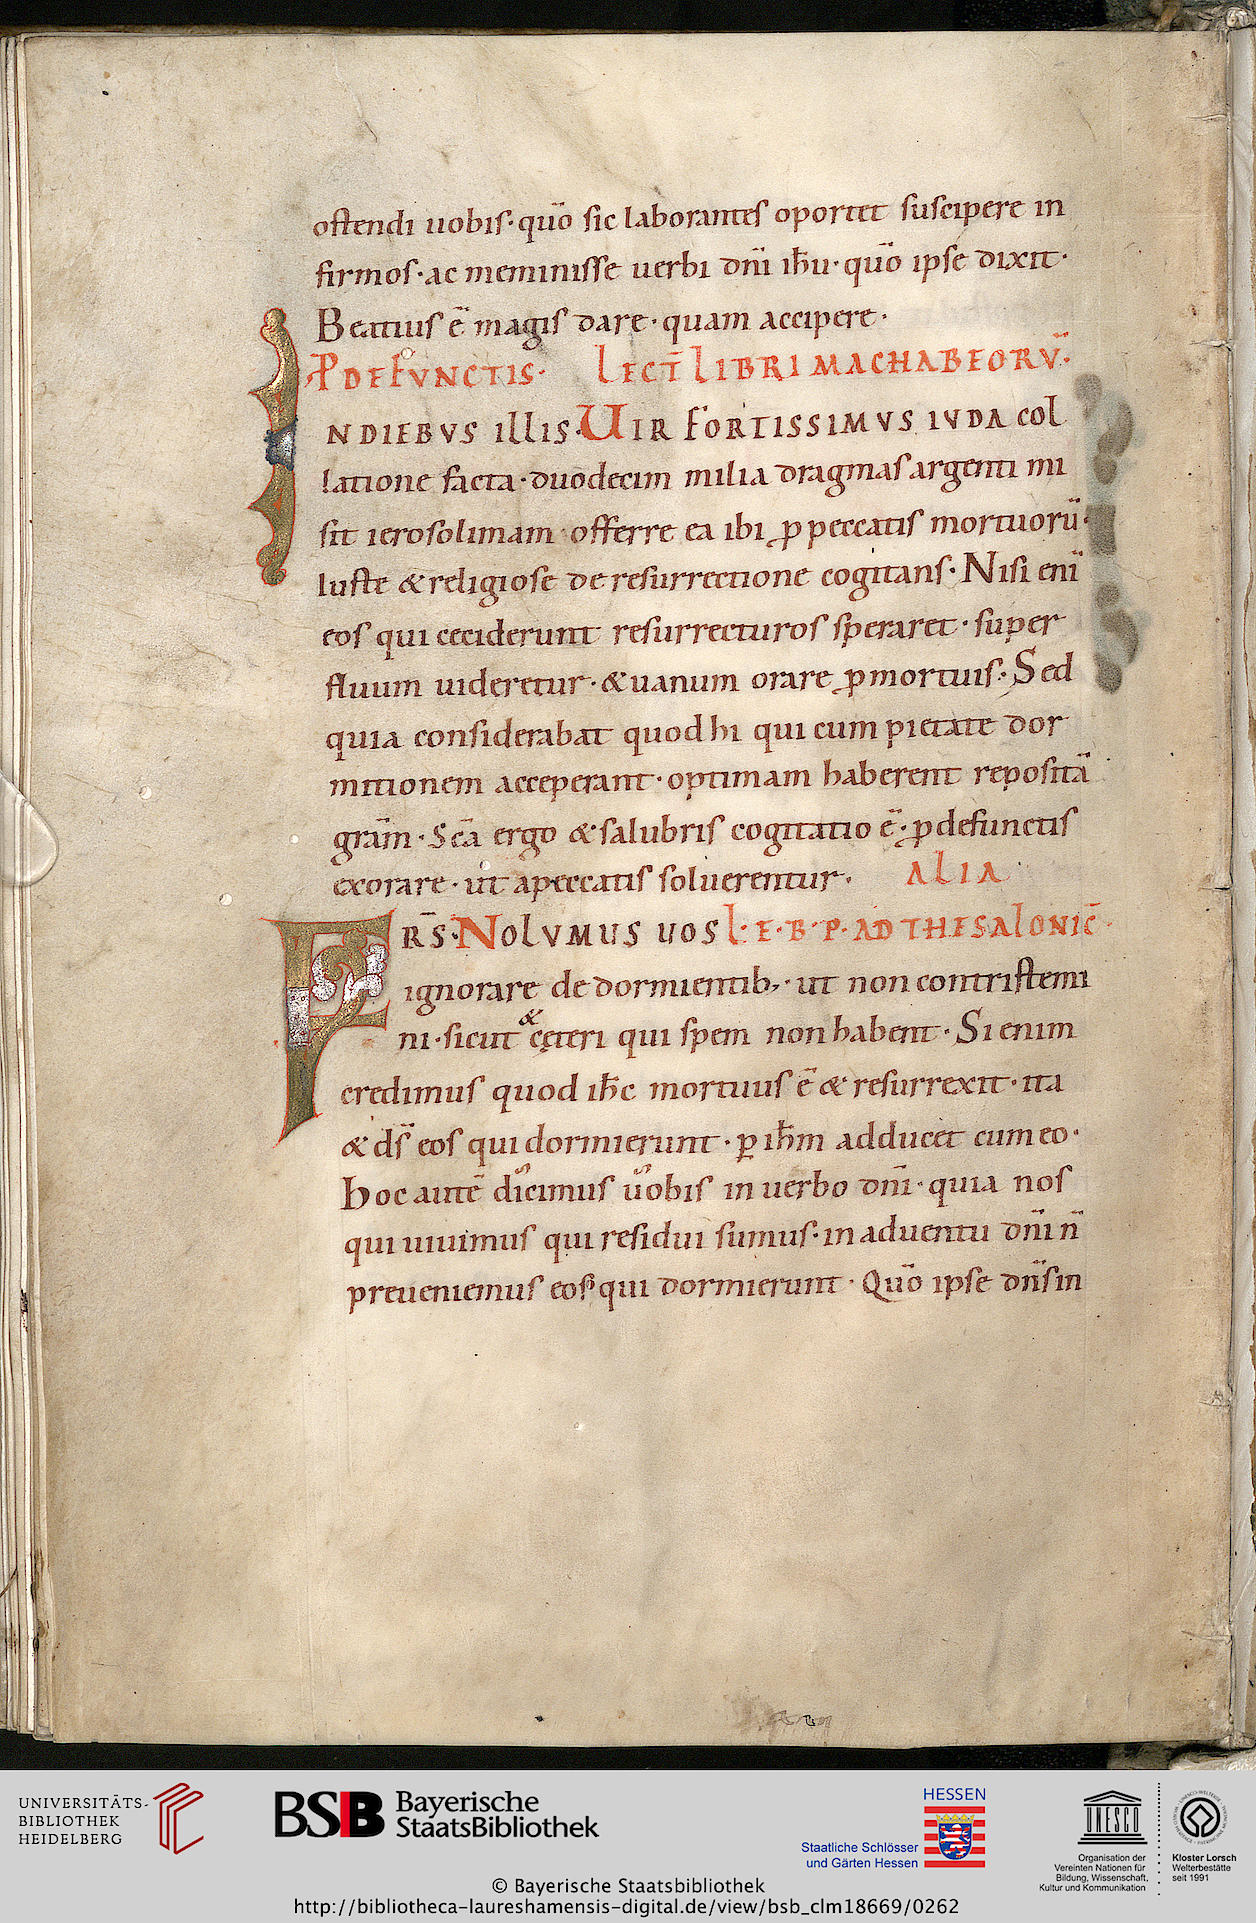 ostendi uobis · quō sic laborantes oportet suscipere in
firmos · ac meminisse uerbi dn̄i ihū · quō ipse dixit ·
Beatius ē magis dare · quam accipere ·
P DEFUNCTIS · LECT̄ LIBRI MACHABEORŪ ·
INDIEBVS ILLIS · UIR FORTISSIMVS IVDA COL
latione facta · duodecim milia dragmas argenti mi
sit ierosolimam offerre ea ibi ꝓ peccatis mortuorū ·
Iuste & religiose de resurrectione cogitans · Nisi eni̅
eos qui ceciderunt resurrecturos speraret · super
fluum uideretur · & uanum orare ꝓ mortuis · Sed
quia considerabat quod hi qui cum pietate dor
mitionem acceperant · optimam haberent repositā
grām · Scā ergo & salubris cogitatio ē · ꝓ defunctis
exorare · ut a peccatis soluerentur · ALIA
FRS̄ · NOLVMUS UOS L · E · B · P · AD THESALONIC̄ ·
ignorare de dormientib; · ut non contristemi
ni · sicut & cęteri qui spem non habent · Si enim
credimus quod ihc̄ mortuus ē & resurrexit · ita
& ds̄ eos qui dormierunt · ꝑ ihm̄ adducet cum eo ·
Hoc autē dicimus uobis in uerbo dn̄i · quia nos
qui uiuimus qui residui sumus · in aduentu dn̄i n̄
preueniemus eos qui dormierunt · Quō ipse dn̄s in
UNIVERSITÄTS-
BIBLIOTHEK
HEIDELBERG
BSB Bayerische
StaatsBibliothek
HESSEN
Staatliche Schlösser
und Gärten Hessen
UNESCO
Organisation der
Vereinten Nationen für
Bildung, Wissenschaft,
Kultur und Kommunikation
Kloster Lorsch
Welterbestätte
seit 1991
© Bayerische Staatsbibliothek
http://bibliotheca-laureshamensis-digital.de/view/bsb_clm18669/0262